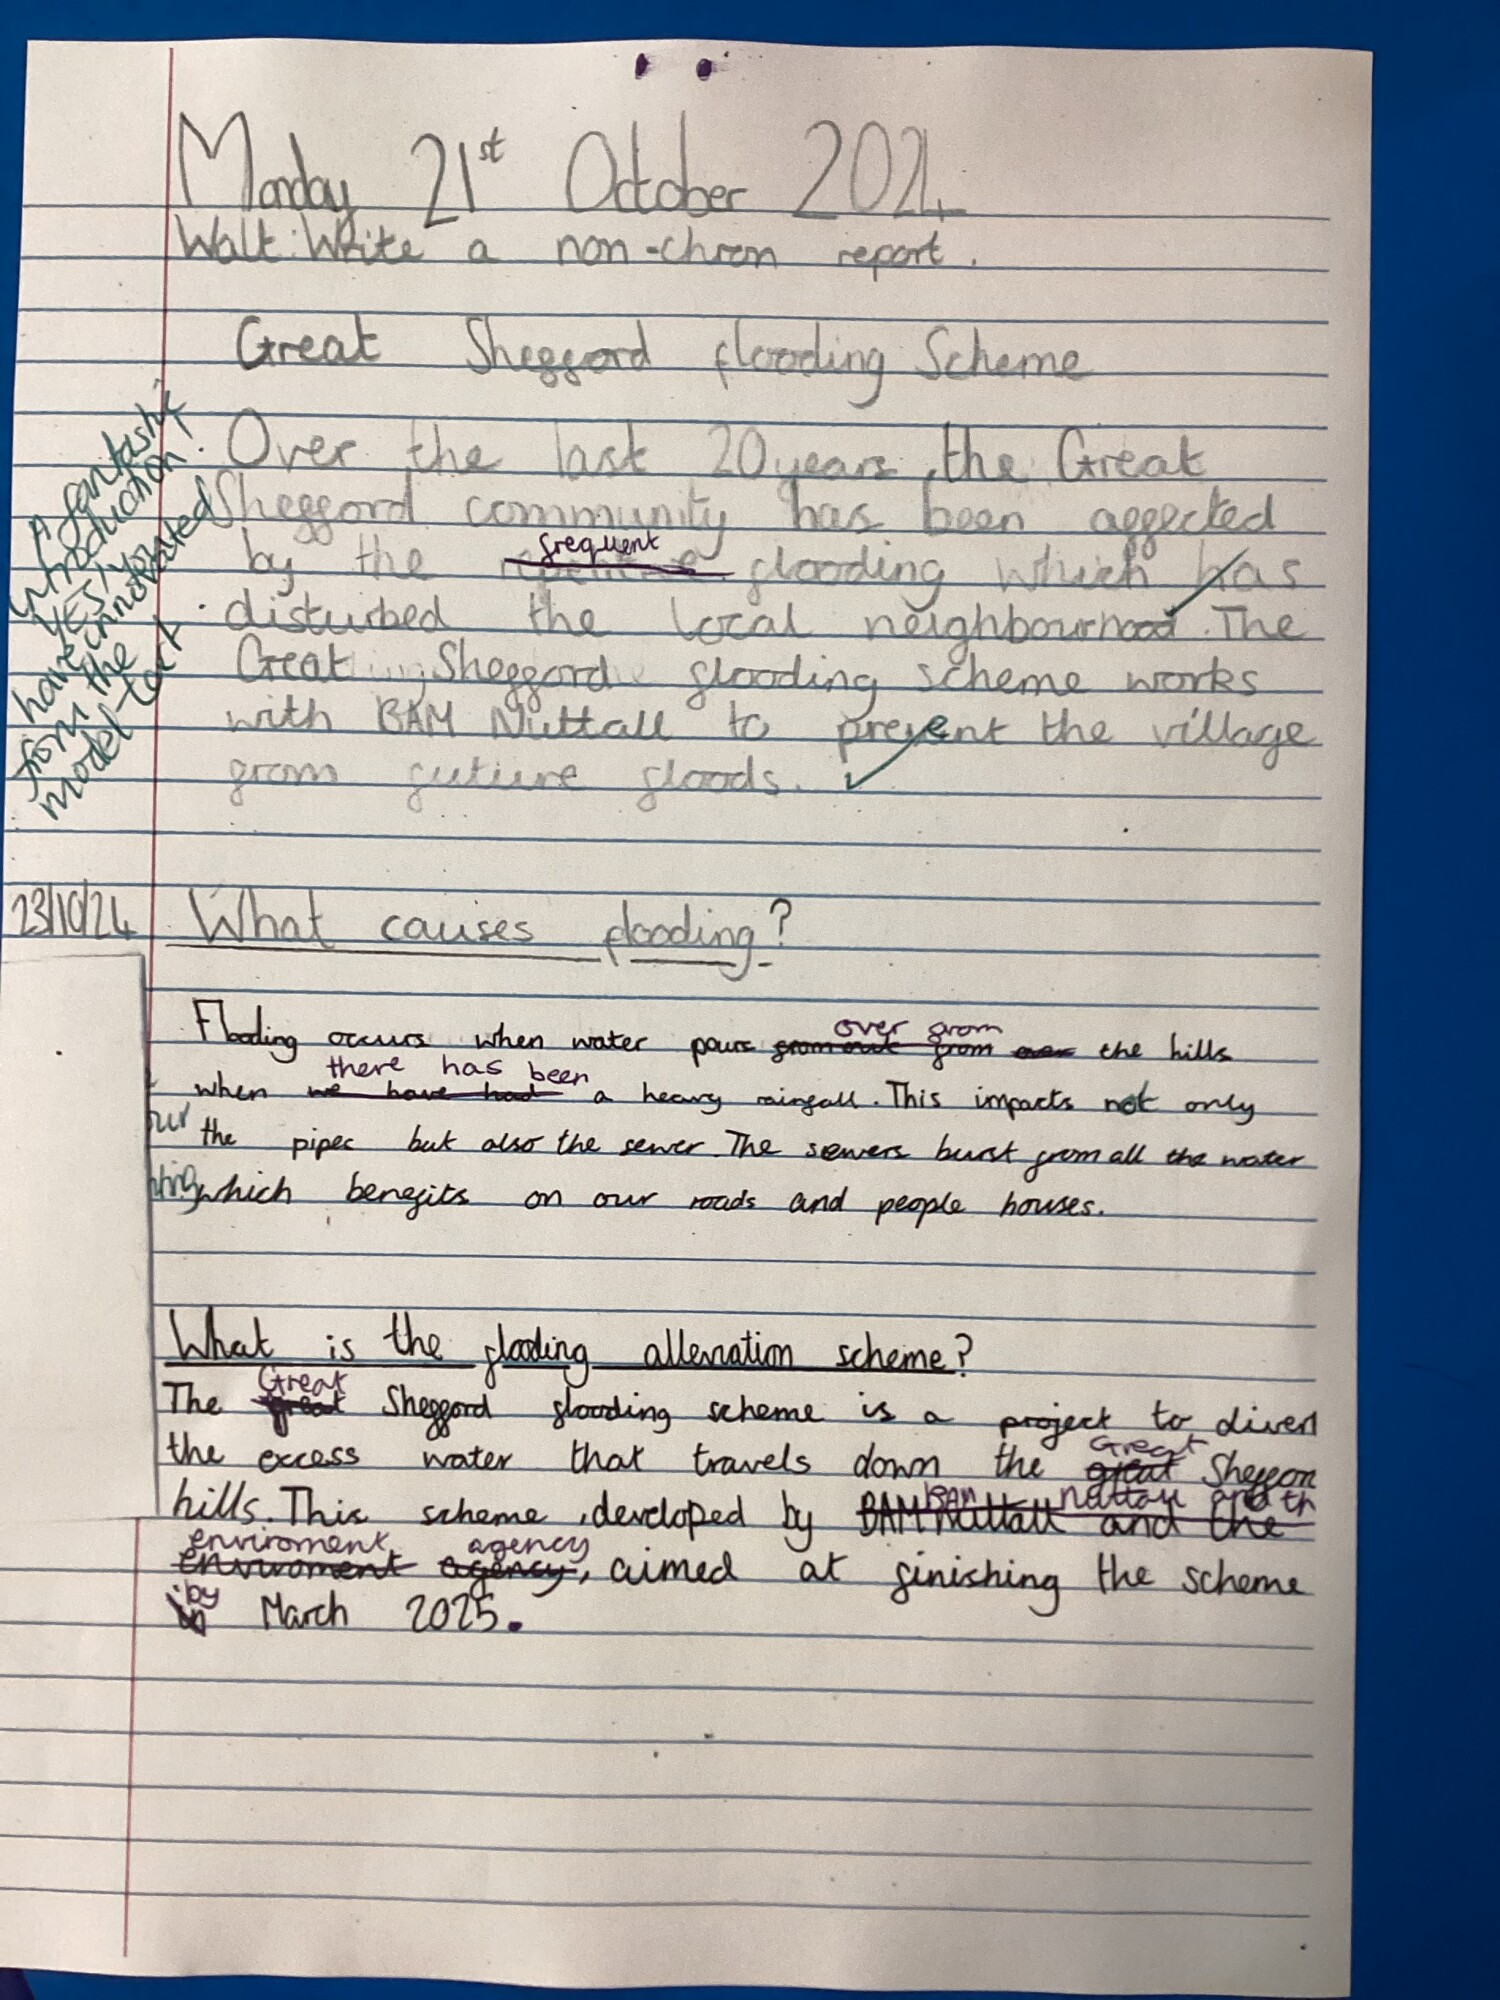 Monday 21st October 2024
Walt: Write a non-chron report.
Great Shefford flooding Scheme
A fantastic
introduction!
YES! you
have innovated
from the
model text.
Over the last 20 years, the Great
Shefford community has been affected
by the frequent flooding which has
disturbed the local neighbourhood. The
Great Shefford flooding scheme works
with BAM Nuttall to prevent the village
from future floods.
23/10/24 What causes flooding?
over from
Flooding occurs when water pours from out from over the hills
there has been
when we have had a heavy rainfall. This impacts not only
the pipes but also the sewer. The sewers burst from all the water
which benefits on our roads and people houses.
What is the flooding alleviation scheme?
Great
The great Shefford flooding scheme is a project to divert
the excess water that travels down the Great Sheffor
hills. This scheme, developed by BAM Nuttall and the
enviroment agency
enviroment agency, aimed at finishing the scheme
by
in March 2025.